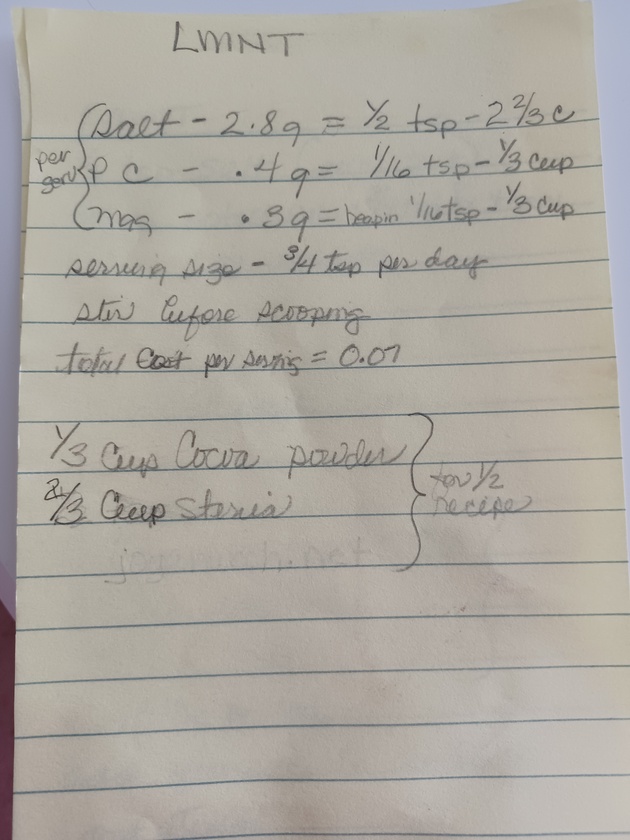 LMNT
Salt - 2.8g = 1/2 tsp - 2 2/3 c
per
P C - .4g = 1/16 tsp - 1/3 cup
serv
mag - .3g = heapin 1/16 tsp - 1/3 cup
serving size - 3/4 tsp per day
stir before scooping
total cost per serving = 0.07
1/3 Cup Cocoa powder
2/3 Cup Stevia
for 1/2
recipe